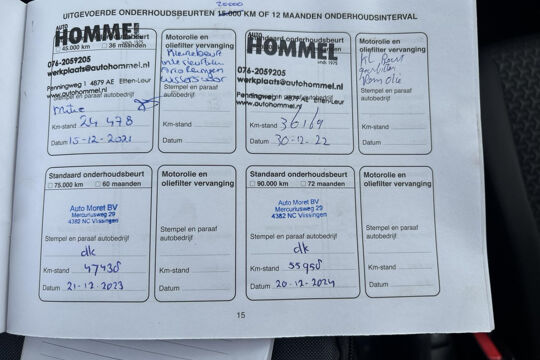 20000
UITGEVOERDE ONDERHOUDSBEURTEN 15.000 KM OF 12 MAANDEN ONDERHOUDSINTERVAL
AUTO
HOMMEL
45.000 km 36 maanden
076-2059205
werkplaats@autohommel.nl
Penningweg 1 4879 AE Etten-Leur
Stempel en paraaf autobedrijf
www.autohommel.nl
Km-stand 24 478
Datum 15-12-2021
Motorolie en
oliefilter vervanging
Kleine beurt
Stempel en paraaf
autobedrijf
Km-stand
Datum
Standaard onderhoudsbeurt
HOMMEL
sinds 1975
076-2059205
werkplaats@autohommel.nl
Penningweg 1 4879 AE Etten-Leur
Stempel en paraaf autobedrijf
www.autohommel.nl
Km-stand 36169
Datum 30-12-22
Motorolie en
oliefilter vervanging
KL Beurt
Stempel en paraaf
autobedrijf
Km-stand
Datum
Standaard onderhoudsbeurt
75.000 km 60 maanden
Auto Moret BV
Mercuriusweg 29
4382 NC Vlissingen
Stempel en paraaf autobedrijf
dk
Km-stand 47438
Datum 21-12-2023
Motorolie en
oliefilter vervanging
Stempel en paraaf
autobedrijf
Km-stand
Datum
Standaard onderhoudsbeurt
90.000 km 72 maanden
Auto Moret BV
Mercuriusweg 29
4382 NC Vlissingen
Stempel en paraaf autobedrijf
dk
Km-stand 55958
Datum 20-12-2024
Motorolie en
oliefilter vervanging
Stempel en paraaf
autobedrijf
Km-stand
Datum
15